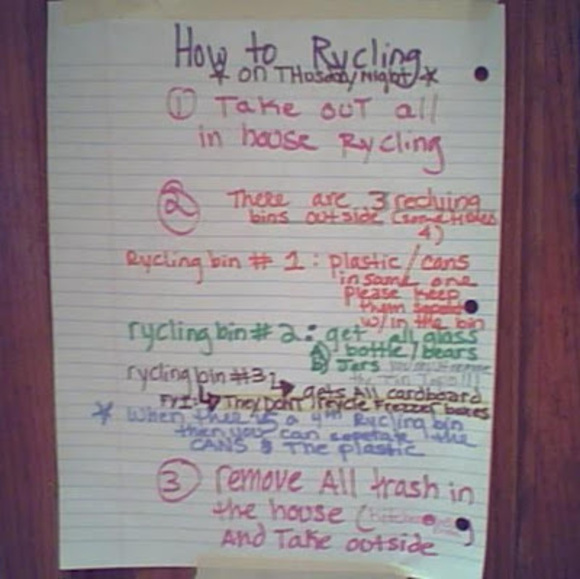 How to Rycling
* on THusday Night *
① Take OUT all
in house Rycling
② There are 3 reclying
bins outside (sometimes
4)
Rycling bin # 1 : plastic/cans
in same one
Please Keep
them
w/in the bin
rycling bin # 2 : get all glass
A) bottle/bears
B) Jars
rycling bin #3 : gets All cardboard
FYI: They Don't recycle Freezer boxes
* When thee is a 4th Rycling bin
then you can seperate the
CANS & The plastic
③ remove All trash in
the house (
And Take outside